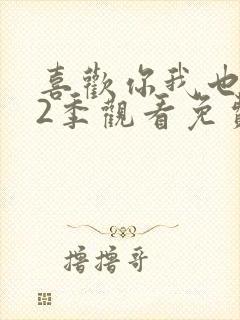 喜歡你我也
2季觀看免費
撸撸哥